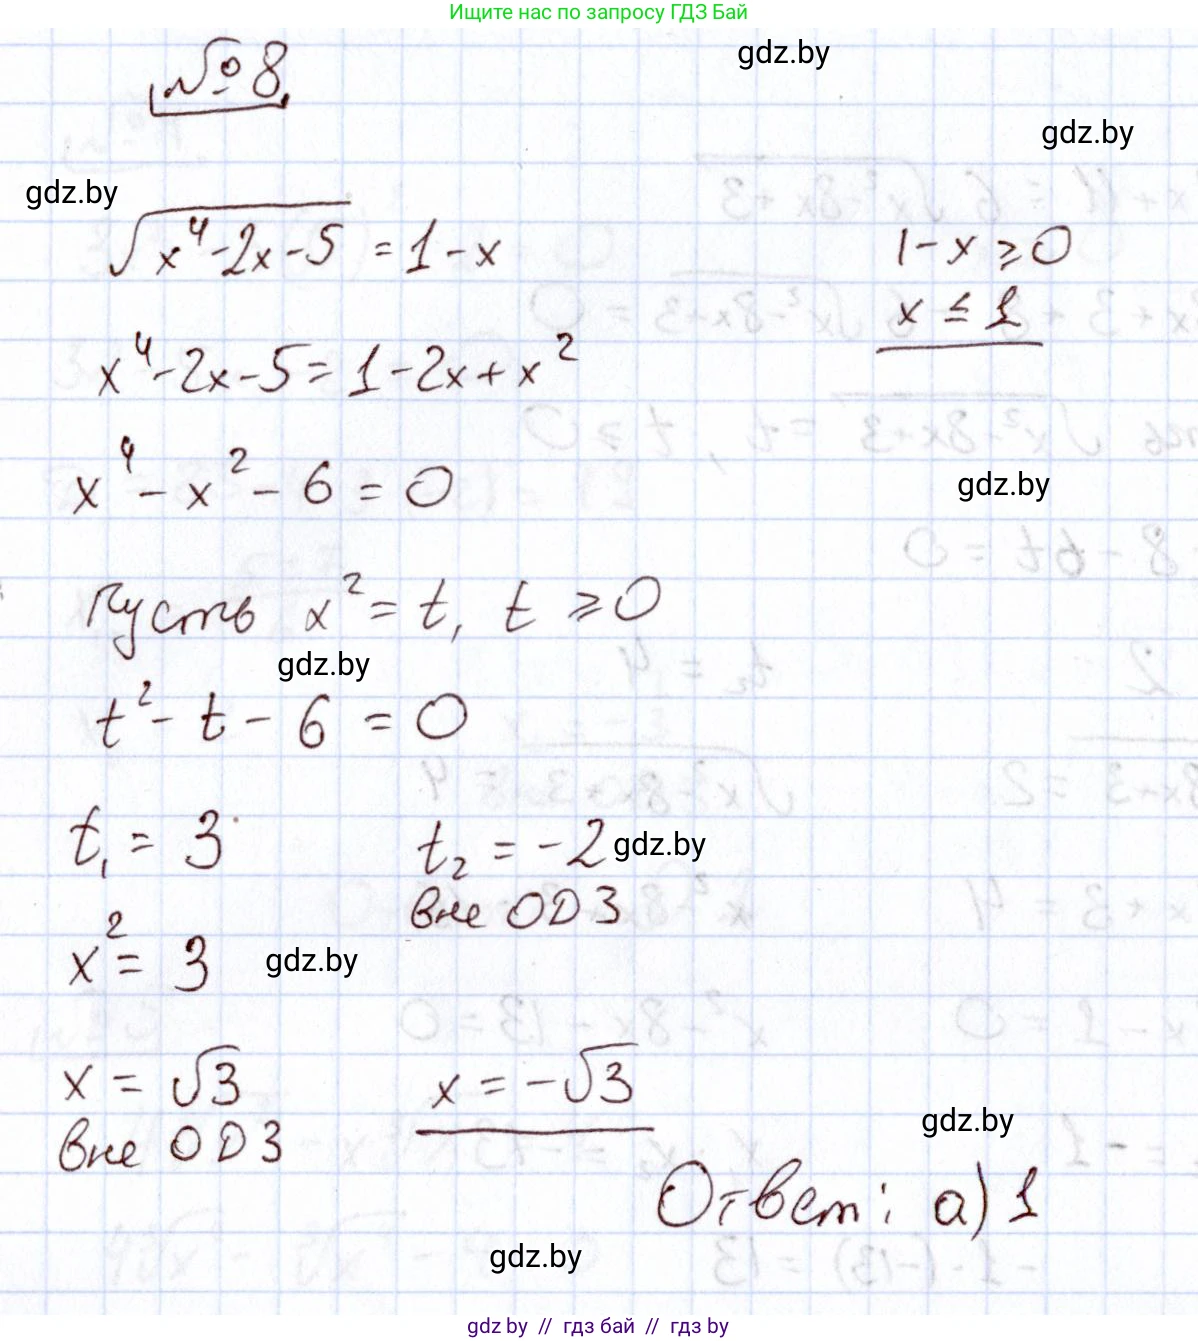 Ищите нас по запросу ГДЗ Бай
№ 8.
gdz.by
gdz.by
gdz.by
√(x⁴-2x-5) = 1-x
1-x ≥ 0
x ≤ 1
x⁴-2x-5 = 1-2x+x²
x⁴ - x² - 6 = 0
gdz.by
Пусть x² = t, t ≥ 0
gdz.by
t² - t - 6 = 0
t₁ = 3
t₂ = -2
gdz.by
вне ОДЗ
x² = 3
gdz.by
x = √3
x = -√3
вне ОДЗ
gdz.by
Ответ: а) 1
gdz.by
gdz.by // гдз бай // gdz.by